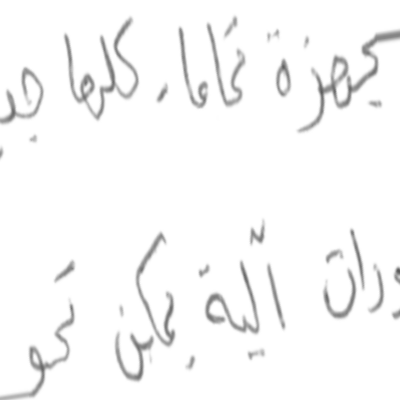 مجهزة تماما. كلها جد
ورات آلية يمكن تحو